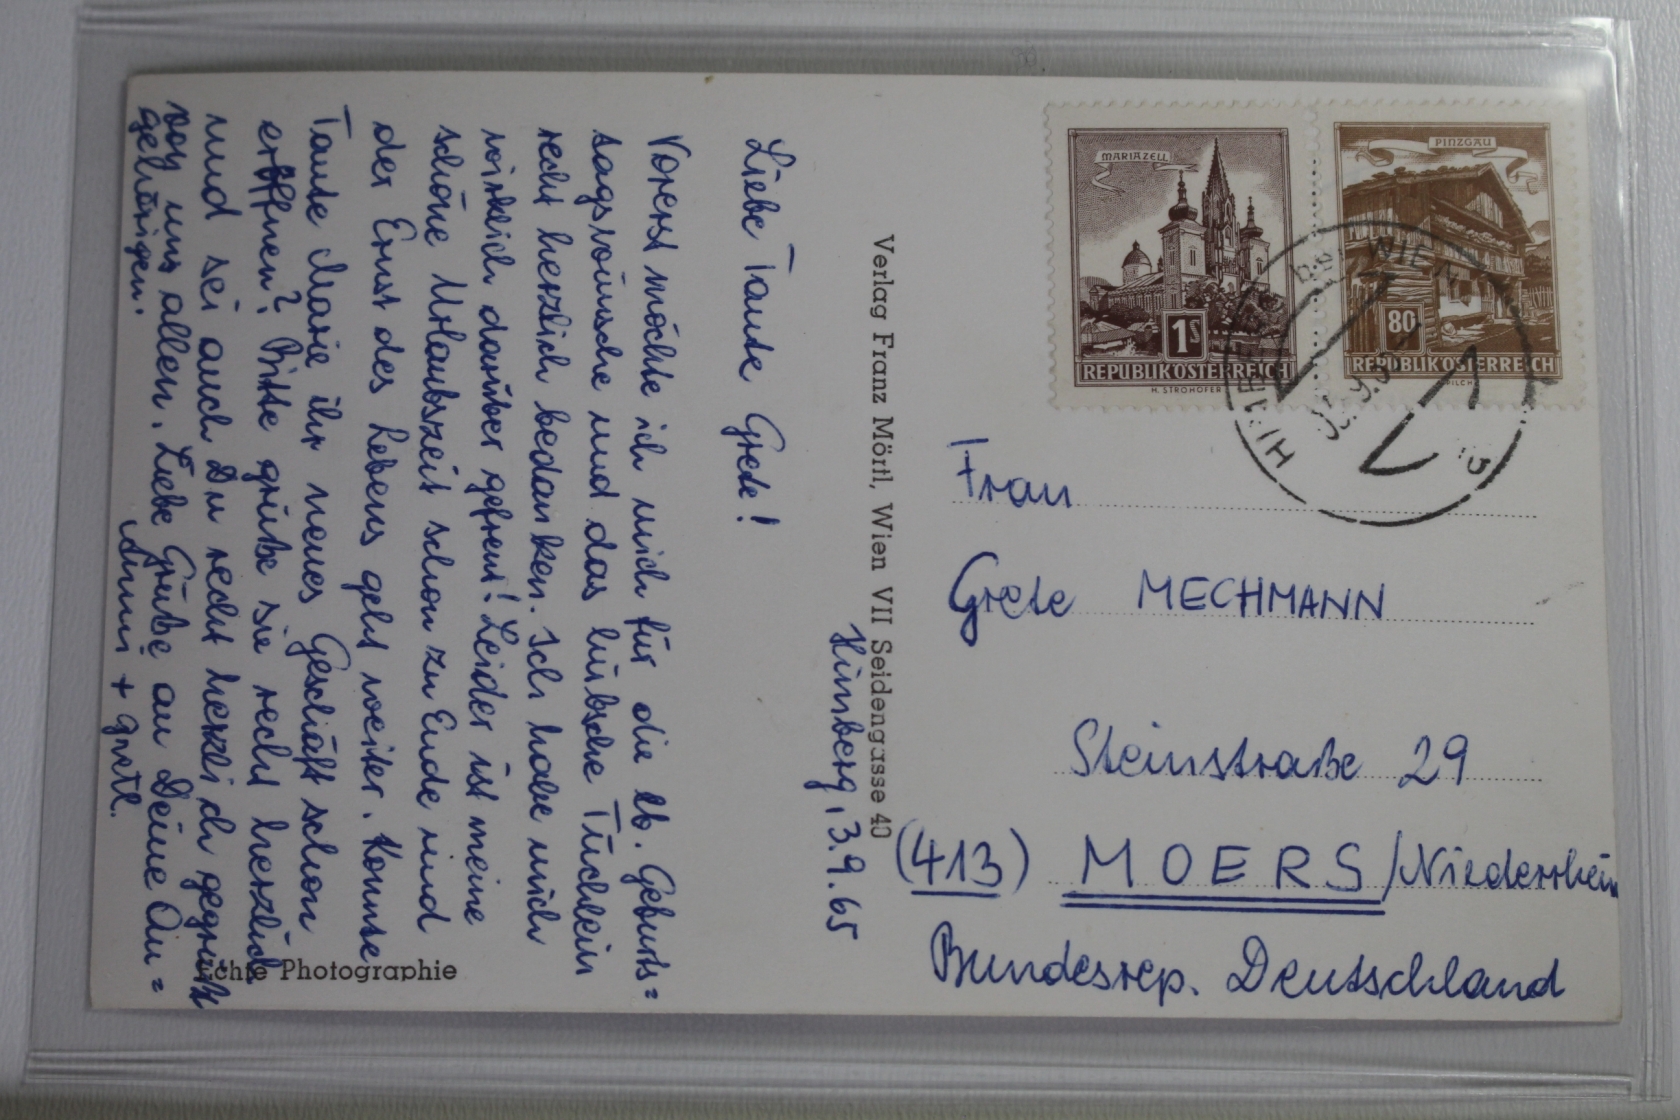 Himberg, 3.9.65
Liebe Tante Grete!
Vorerst möchte ich mich für die lb. Geburts=
tagswünsche und das hübsche Tüchlein
recht herzlich bedanken. Ich habe mich
wirklich darüber gefreut! Leider ist meine
schöne Urlaubszeit schon zu Ende und
der Ernst des Lebens geht weiter. Konnte
Tante Marie ihr neues Geschäft schon
eröffnen? Bitte grüße sie recht herzlich
und sei auch Du recht herzlich gegrüßt
von uns allen. Liebe Grüße an Deine An=
gehörigen.
Anni + Gretl.
Echte Photographie
Verlag Franz Mörtl, Wien VII Seidengasse 40
MARIAZELL
1S
REPUBLIK ÖSTERREICH
H. STROHOFER
PINZGAU
80
REPUBLIK ÖSTERREICH
HIMBERG BEI WIEN
Frau
Grete MECHMANN
Steinstraße 29
(413) MOERS/Niederrhein
Bundesrep. Deutschland